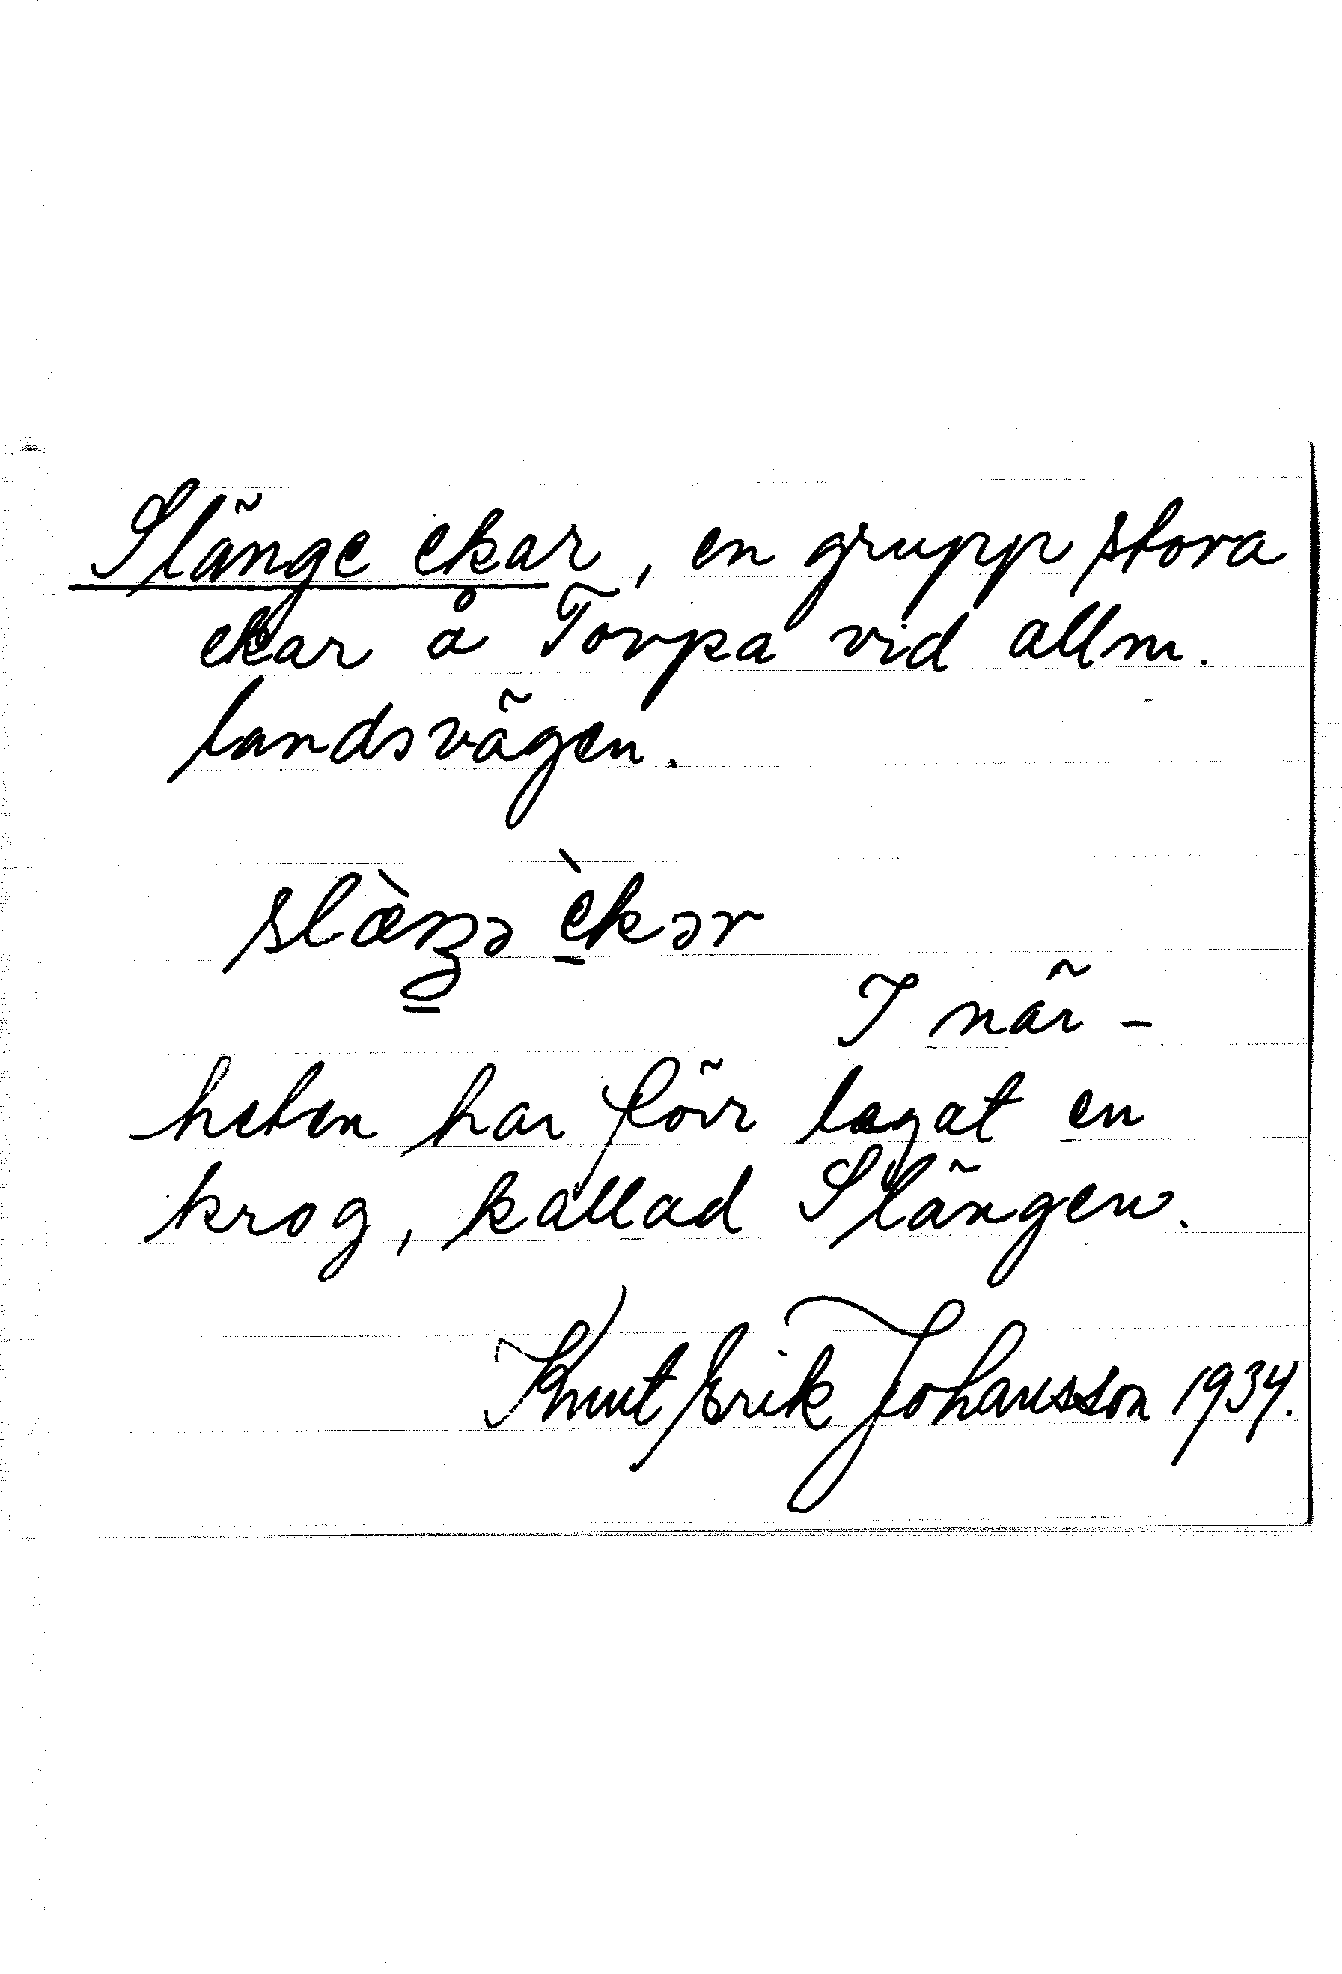 Slänge ekar, en grupp stora
ekar å Torpa vid allm.
landsvägen.
slæ̀ŋə èkər
I när-
heten har förr legat en
krog, kallad Slängen.
Knut Erik Johansson 1934.